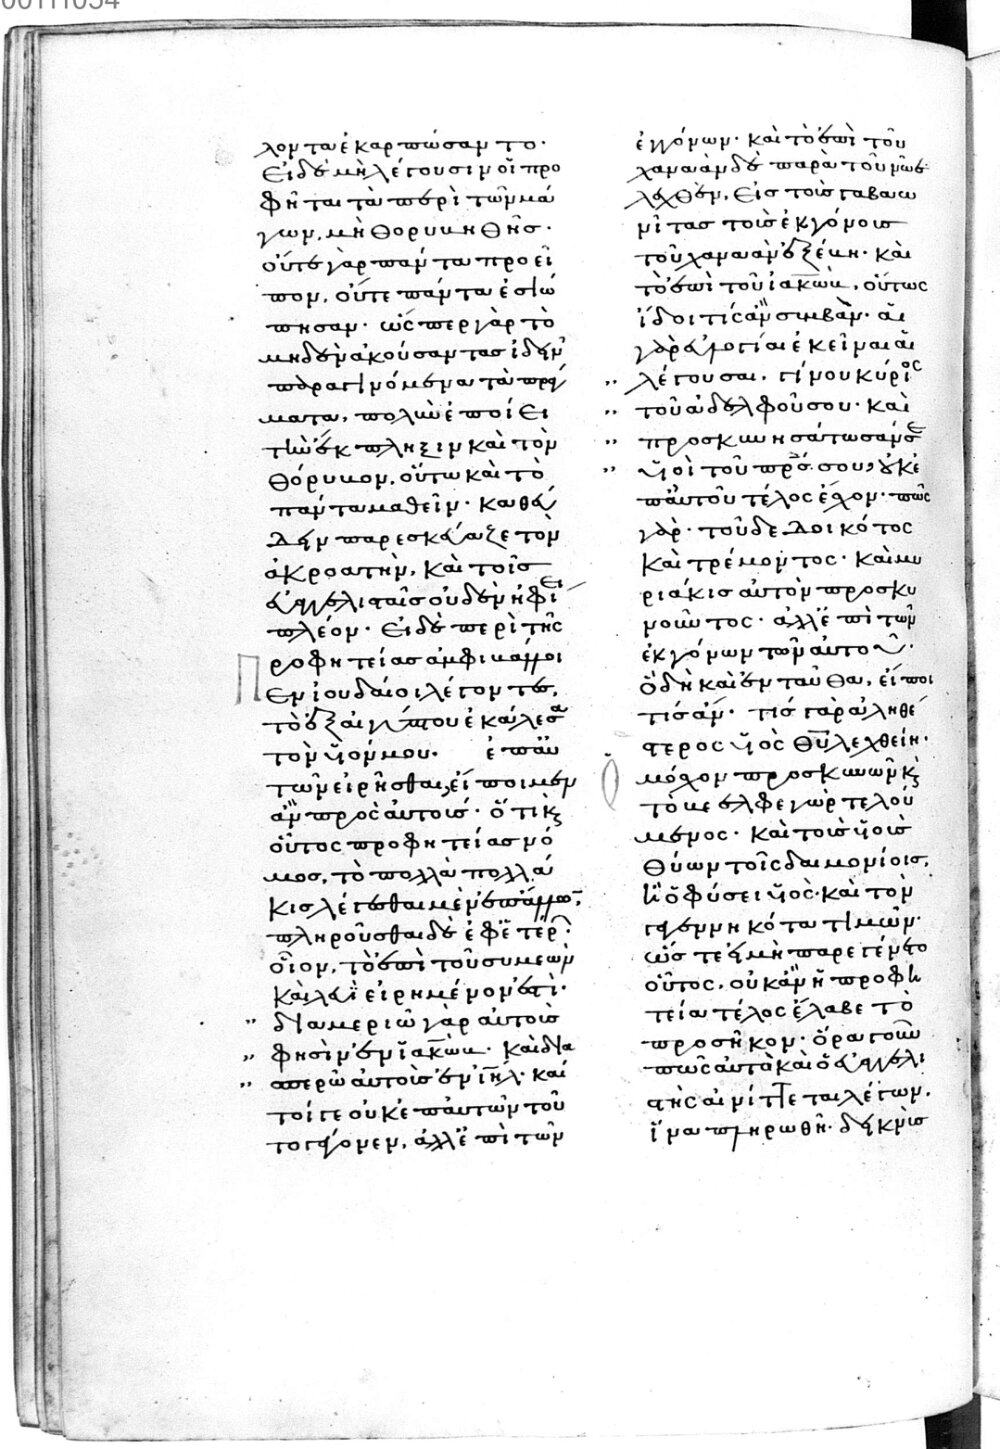 λοντα ἐκαρπώσαντο·
Εἰ δὲ μὴ λέγουσιν οἵ προ
φῆται τὰ περὶ τῶν μά
γων, μὴ θορυβηθῇς·
οὔτε γὰρ πάντα προεῖ
πον, οὔτε πάντα ἐσιώ
πησαν· ὥσπερ γὰρ τὸ
μηδὲν ἀκούσαντας ἰδεῖν
πράγινόμενα τὰ πρά
ματα, πολλὴν ἐποίει
τὴν ἔκπληξιν καὶ τὸν
θόρυβον, οὕτω καὶ τὸ
πάντα μαθεῖν· καθεύ
δειν παρεσκεύαζε τὸν
ἀκροατὴν, καὶ τοῖς
εὐαγγελισταῖς οὐδὲν ἠφίει
πλέον· Εἰ δὲ περὶ τῆς
ροφητείας ἀμφιβάλλοι
Π
εν ἰουδαῖοι λέγοντες,
τὸ ἐξ αἰγύπτου ἐκάλεσα
τὸν υἱόν μου· ἐπ αὐ
τῶν εἰρῆσθαι, εἴποιμεν
ἂν πρὸς αὐτοὺς· ὅτι καὶ
οὗτος προφητείας νό
μος, τὸ πολλὰ πολλά
κις λέγεσθαι μὲν ἐπ ἄλλων,
πληροῦσθαι δὲ ἐφ ἑτέρων·
οἷον, τὸ ἐπὶ τοῦ συμεὼν
καὶ λευῒ εἰρημένον ἐστὶ·
" διαμεριῶ γὰρ αὐτοὺς
" φησὶν ἐν ἰακὼβ· καὶ δια
" σπερῶ αὐτοὺς ἐν ιηλ· καί
τοίγε οὐκ ἐπ αὐτῶν τοῦ
το γέγονεν, ἀλλ ἐπὶ τῶν
ἐγγόνων· καὶ τὸ ἐπὶ τοῦ
χαναὰν δὲ παρὰ τοῦ νῶε
λεχθὲν, εἰς τοὺς γαβαω
νίτας τοὺς ἐκγόνους
τοῦ χαναὰν ἐξέβη· καὶ
τὸ ἐπὶ τοῦ ἰακὼβ, οὕτως
ἴδοι τίς ἂν συμβάν· αἱ
γὰρ εὐλογίαι ἐκεῖναι αἱ
" λέγουσαι, γίνου κύριος
" τοῦ ἀδελφοῦ σου· καὶ
" προσκυνησάτωσάν σε
" υἱοὶ τοῦ πρς σου, οὐκ ἐ
π αὐτοῦ τέλος ἔσχον· πῶς
γὰρ· τοῦ δεδοικότος
καὶ τρέμοντος· καὶ μυ
ριάκις αὐτὸν προσκυ
νοῦντος· ἀλλ ἐπὶ τῶν
ἐκγόνων τῶν αὐτοῦ·
ὃ δὴ καὶ ἐνταῦθα, εἴποι
τίς ἄν· τίς γὰρ ἀληθέ
στερος υἱὸς θυ λεχθείη·
ὁ μόσχον προσκυνῶν καὶ
τὸ βεελφεγὼρ τελού
μενος· καὶ τοὺς υἱοὺς
θύων τοῖς δαιμονίοις,
ἢ ὁ φύσει υἱὸς· καὶ τὸν
γεγεννηκότα τιμῶν·
ὥστε εἰ μὴ παρεγένετο
οὗτος, οὐκ ἂν ἡ προφη
τεία τέλος ἔλαβε τὸ
προσῆκον· ὅρα γοῦν
πῶς αὐτὸ καὶ ὁ εὐαγγελι
στὴς αἰνίττεται λέγων,
ἵνα πληρωθῇ· δεικνὺς